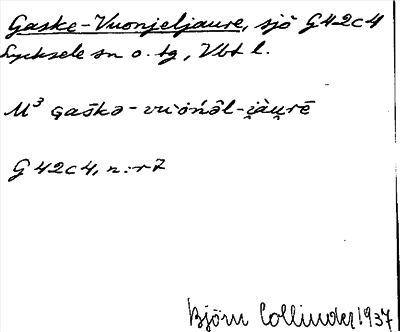 Gaske-Vuonjeljaure, sjö G42c4
Lycksele sn o. tg, Vbt l.
M³ gaškə-vuońȧ̂l-i̯àu̯rē
G42c4, n:r7
Björn Collinder 1937